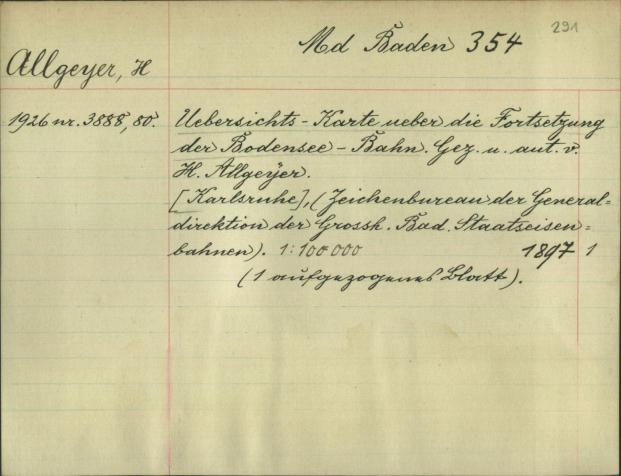 291
Md Baden 354
Allgeyer, H
1926 nr. 3888,80.
Uebersichts-Karte ueber die Fortsetzung
der Bodensee-Bahn. Gez. u. aut. v.
H. Allgeyer.
[Karlsruhe], (Zeichenbureau der General=
direktion der Grossh. Bad. Staatseisen=
bahnen). 1:100 000 1897 1
(1 aufgezogenes Blatt).